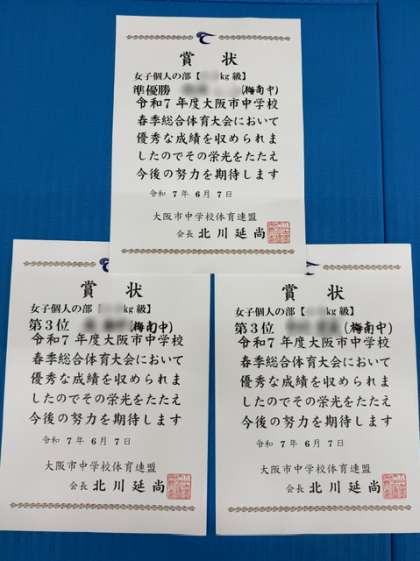 賞状
女子個人の部【kg級】
準優勝 (梅南中)
令和7年度大阪市中学校
春季総合体育大会において
優秀な成績を収められま
したのでその栄光をたたえ
今後の努力を期待します
令和7年6月7日
大阪市中学校体育連盟
会長 北川延尚
賞状
女子個人の部【kg級】
第3位 (梅南中)
令和7年度大阪市中学校
春季総合体育大会において
優秀な成績を収められま
したのでその栄光をたたえ
今後の努力を期待します
令和7年6月7日
大阪市中学校体育連盟
会長 北川延尚
賞状
女子個人の部【kg級】
第3位 (梅南中)
令和7年度大阪市中学校
春季総合体育大会において
優秀な成績を収められま
したのでその栄光をたたえ
今後の努力を期待します
令和7年6月7日
大阪市中学校体育連盟
会長 北川延尚